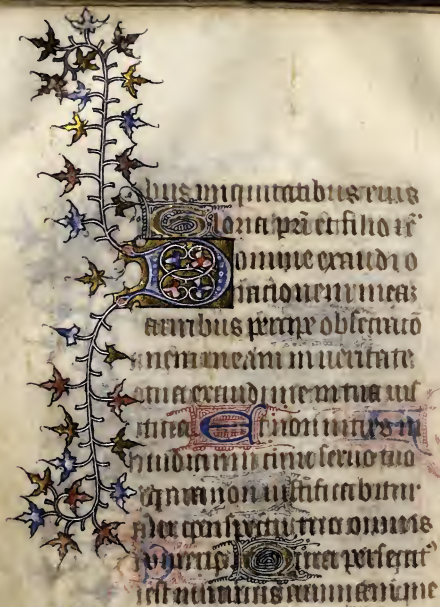 bus iniquitatibus eius
Gloria pri et filio sc
Domine exaudi o
rationem meaz
auribus percipe obsecratio
nem meam in veritate
tua exaudi me in tua ius
titia Et non intres in
iudicium cum servo tuo
quia non iustificabitur
in conspectu tuo omnis
vivens Quia persecut
est inimicus animam me